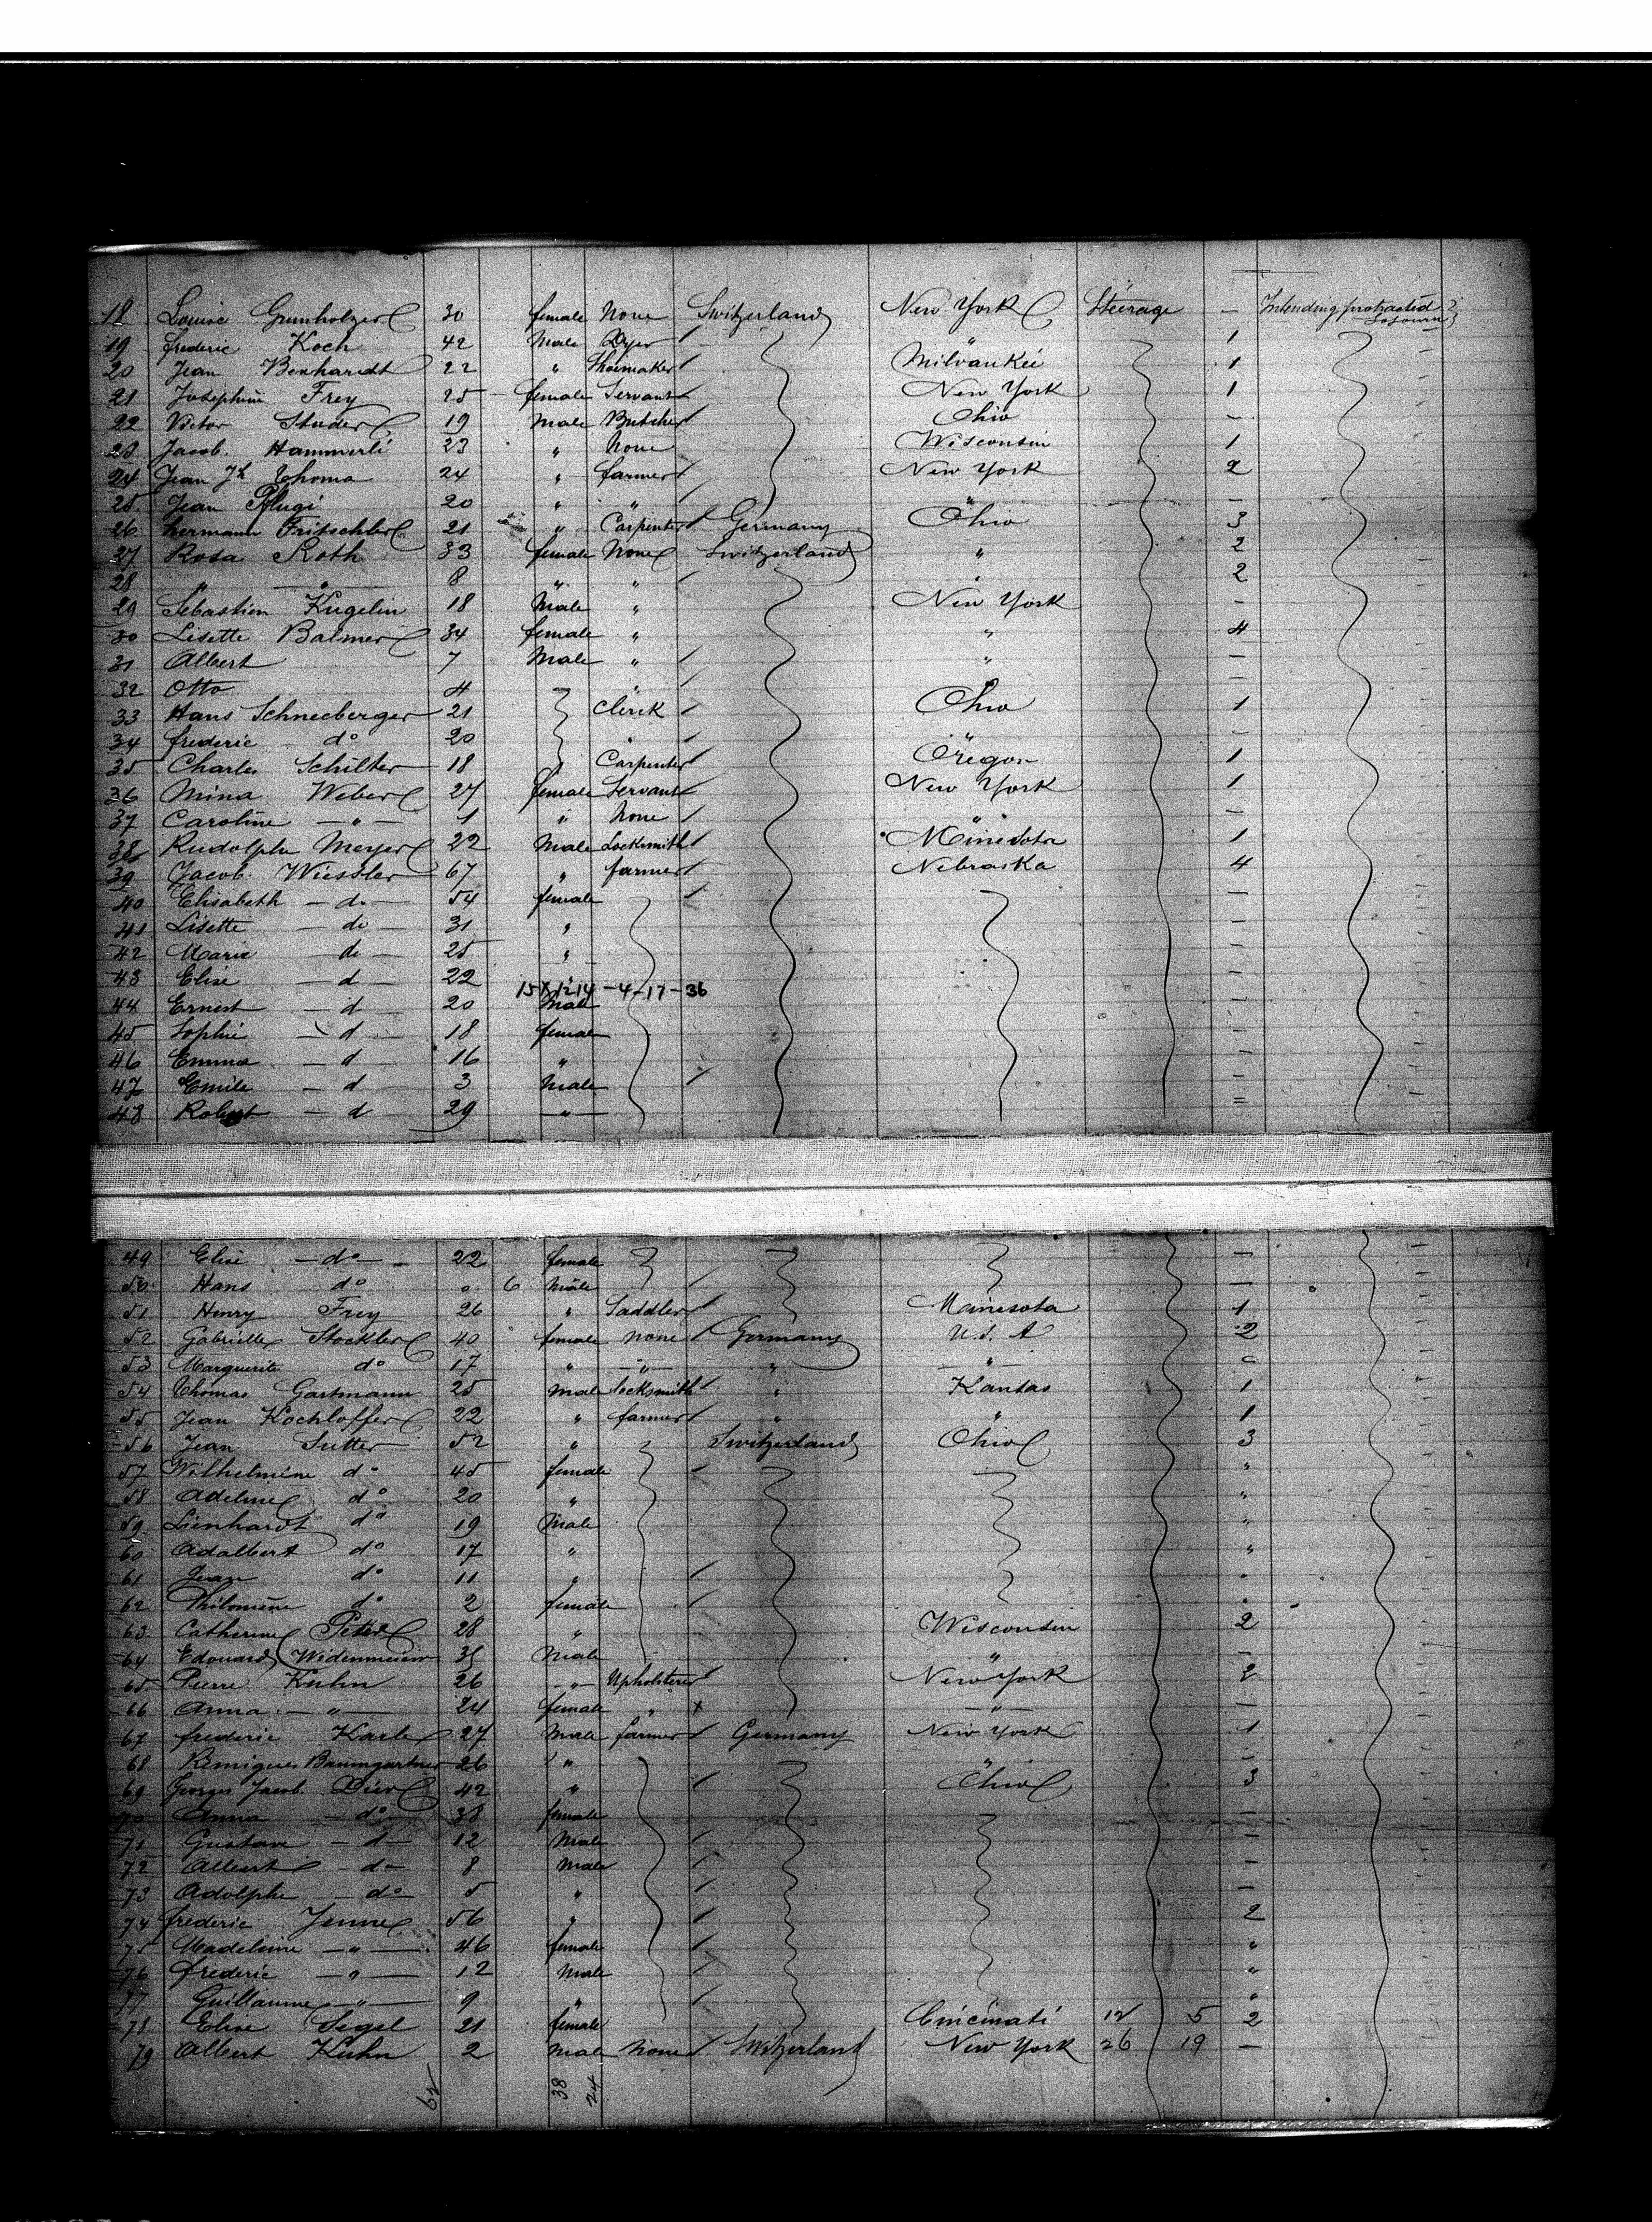 18 Louise Grunholzer 30 female None Switzerland New York Steerage — Intending protracted sojourn
19 frederic Koch 42 Male Dyer " 1
20 Jean Benhardt 22 " Shoemaker Milvaukée 1
21 Josephine Frey 25 female Servant New York 1
22 Victor Studer 19 Male Butcher Ohio —
23 Jacob. Hammerli 23 " None Wisconsin 1
24 Jean Jh Thoma 24 " farmer New York 2
25 Jean Pflugi 20 " " " —
26 hermann Fritschler 21 " Carpenter Germany Ohio 3
27 Rosa Roth 33 female None Switzerland " 2
28 " — " — 8 " " " 2
29 Sebastien Kugelin 18 Male " New York —
30 Lisette Balmer 34 female " " 4
31 Albert 7 Male " " —
32 Otto 4 " " —
33 Hans Schneeberger 21 Clerk Ohio 1
34 frederic do 20 " " —
35 Charles Schilter 18 Carpenter Oregon 1
36 Mina Weber 27 female Servant New York 1
37 Caroline — " — 1 " None " —
38 Rudolphe Meyer 22 Male Locksmith Minesota 1
39 Jacob. Wiessler 67 " farmer Nebraska 4
40 Elisabeth — do — 54 female
41 Lisette — do — 31 " —
42 Marie — do — 25 " —
43 Elise — d — 22 —
15X1214 -4-17-36
44 Ernest — d — 20 Male —
45 Sophie — d 18 female —
46 Emma — d 16 " —
47 Emile — d 3 Male —
48 Robert — d 29 — " — =
49 Elise — do — 22 female —
50 Hans do 0 6 Male —
51 Henry Frey 26 " Saddler Mainesota 1
52 Gabrielle Stockler 40 female none Germany U.S. A 2
53 Marguerite do 17 " — " — " — " —
54 Thomas Gartmann 25 Male Locksmith " Kansas 1
55 Jean Kochloffer 22 " farmer " " 1
56 Jean Sutter 52 " Switzerland Ohio 3
57 Wilhelmine do 45 female "
58 Adeline do 20 " "
59 Lienhardt do 19 Male "
60 Adalbert do 17 " "
61 Jean do 11 " "
62 Philomène do 2 female "
63 Catherine Peter 28 " Wisconsin 2
64 Edouard Widenmeier Male " —
65 Pierre Kuhn 26 — " — Upholsterer New York 2
66 Anna — " — 24 female " x — " — —
67 frederic Karle 27 Male farmer Germany New York 1
68 Remigius Baumgartner 26 " " —
69 Georges Jacob. Dier 42 " Ohio 3
70 Anna — do 38 female —
71 Gustave — d — 12 Male —
72 Albert — do — 8 Male —
73 Adolphe — do 5 " —
74 frederic Jenne 56 " 2
75 Madeleine — " — 46 female "
76 frederic — " — 12 Male "
77 Guillaume — " — 9 " "
78 Elise Segel 21 female Cincinati 12 5 2
79 Albert Kuhn 2 Male None Switzerland New York 26 19 —
62 38 24